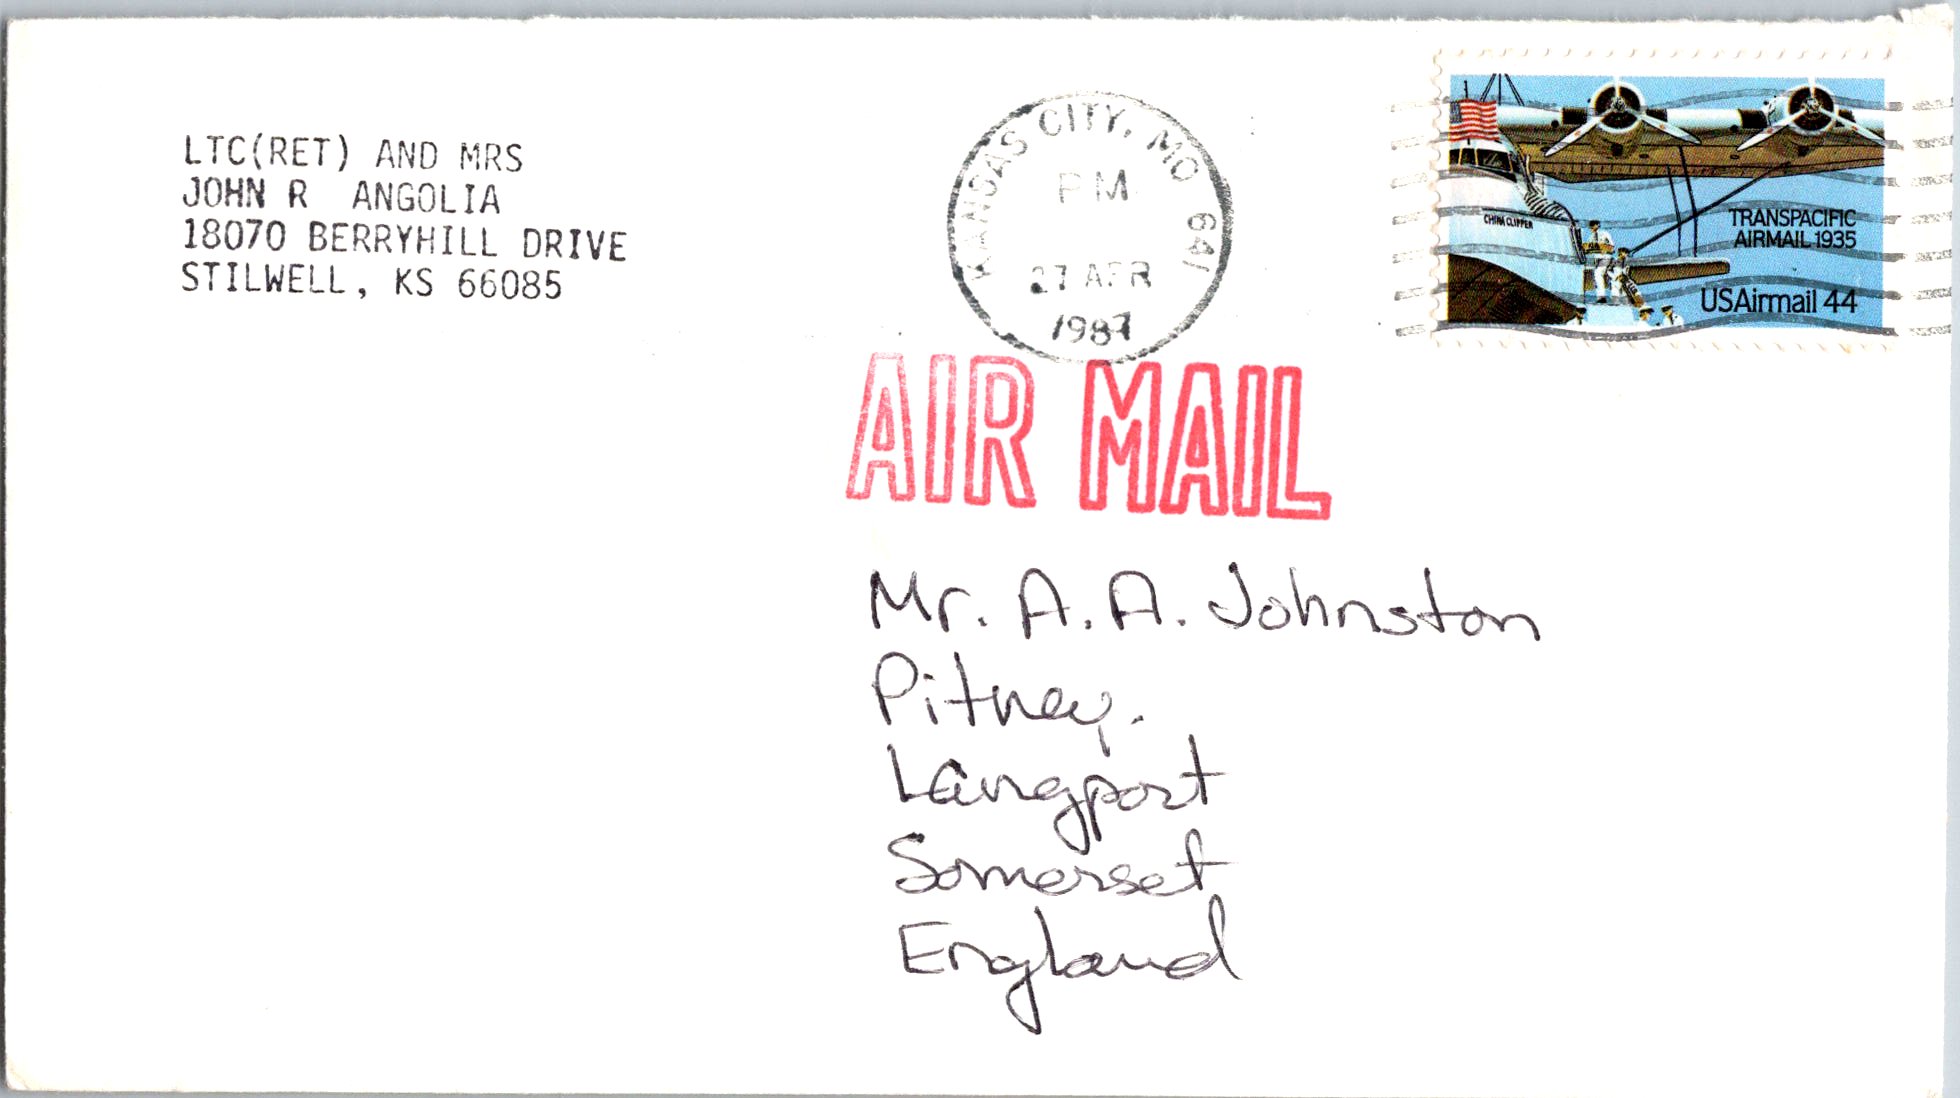 LTC(RET) AND MRS
JOHN R ANGOLIA
18070 BERRYHILL DRIVE
STILWELL, KS 66085
KANSAS CITY, MO 641
PM
27 APR
1987
CHINA CLIPPER
TRANSPACIFIC
AIRMAIL 1935
USAirmail 44
AIR MAIL
Mr. A. A. Johnston
Pitney.
Langport
Somerset
England